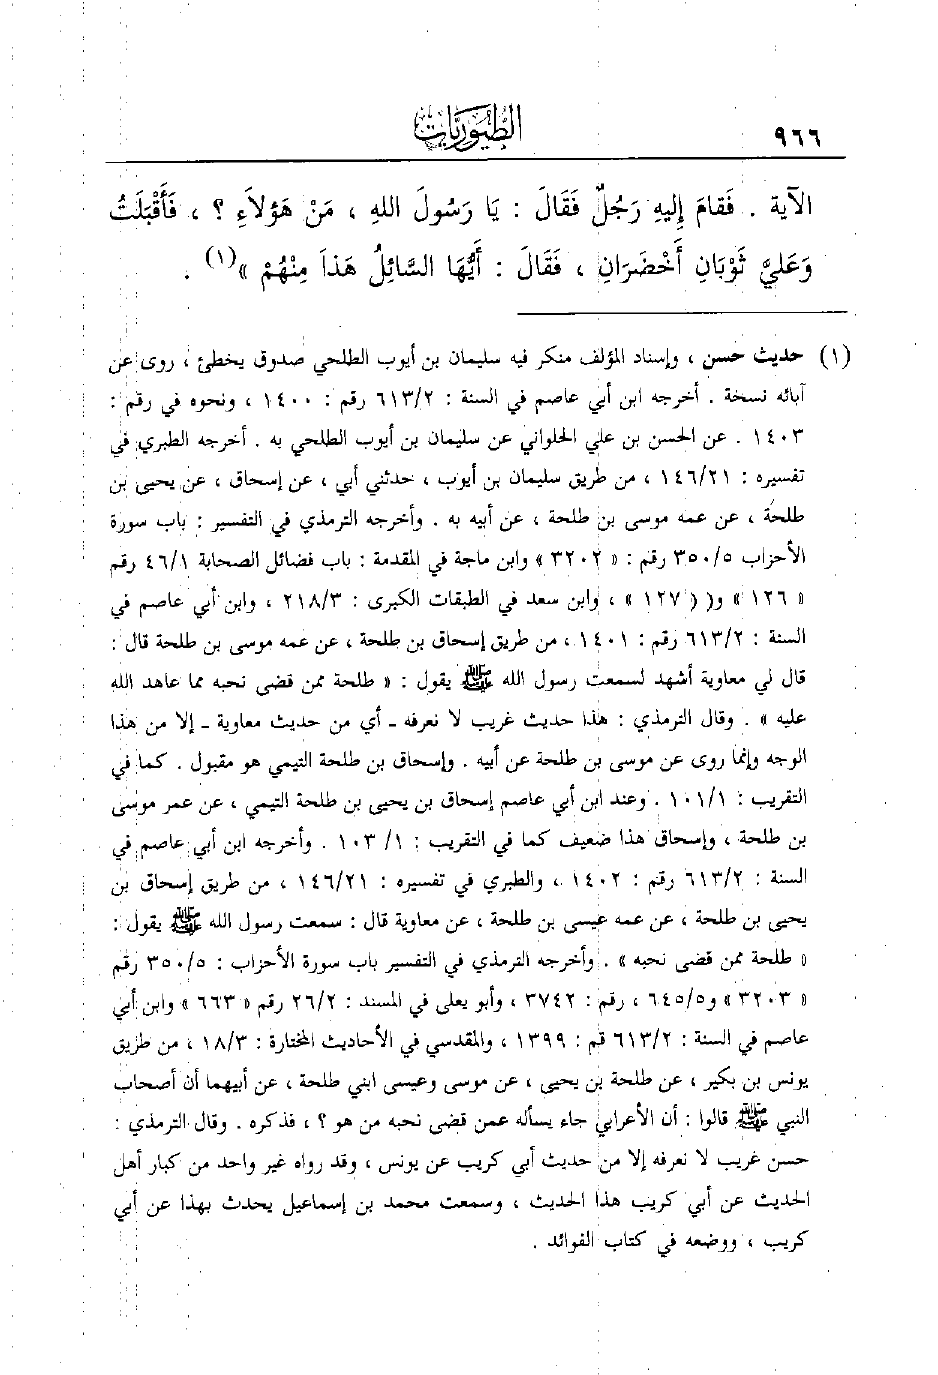 ٩٦٦
الطيوريات
الآية . فَقامَ إِليهِ رَجُلٌ فَقَالَ : يَا رَسُولَ اللهِ ، مَنْ هَؤلاَءِ ؟ ، فَأَقْبَلَتُ
وَعَليَّ ثَوْبَانِ أَخْضَرَانِ ، فَقَالَ : أَيُّهَا السَّائِلُ هَذاَ مِنْهُمْ »(١) .
(١) حديث حسن ، وإسناد المؤلف منكر فيه سليمان بن أيوب الطلحي صدوق يخطئ ، روى عن
آبائه نسخة . أخرجه ابن أبي عاصم في السنة : ٦١٣/٢ رقم : ١٤٠٠ ، ونحوه في رقم :
١٤٠٣ . عن الحسن بن علي الحلواني عن سليمان بن أيوب الطلحي به . أخرجه الطبري في
تفسيره : ١٤٦/٢١ ، من طريق سليمان بن أيوب ، حدثني أبي ، عن إسحاق ، عن يحيى بن
طلحة ، عن عمه موسى بن طلحة ، عن أبيه به . وأخرجه الترمذي في التفسير : باب سورة
الأحزاب ٣٥٠/٥ رقم : « ٣٢٠٢ » وابن ماجة في المقدمة : باب فضائل الصحابة ٤٦/١ رقم
« ١٢٦ » و( ( ١٢٧ » ، وابن سعد في الطبقات الكبرى : ٢١٨/٣ ، وابن أبي عاصم في
السنة : ٦١٣/٢ رقم : ١٤٠١ ، من طريق إسحاق بن طلحة ، عن عمه موسى بن طلحة قال :
قال لي معاوية أشهد لسمعت رسول الله ﷺ يقول : « طلحة ممن قضى نحبه مما عاهد الله
عليه » . وقال الترمذي : هذا حديث غريب لا نعرفه ـ أي من حديث معاوية ـ إلا من هذا
الوجه وإنما روى عن موسى بن طلحة عن أبيه . وإسحاق بن طلحة التيمي هو مقبول . كما في
التقريب : ١٠١/١ . وعند ابن أبي عاصم إسحاق بن يحيى بن طلحة التيمي ، عن عمر موسى
بن طلحة ، وإسحاق هذا ضعيف كما في التقريب : ١/ ١٠٣ . وأخرجه ابن أبي عاصم في
السنة : ٦١٣/٢ رقم : ١٤٠٢ ، والطبري في تفسيره : ١٤٦/٢١ ، من طريق إسحاق بن
يحيى بن طلحة ، عن عمه عيسى بن طلحة ، عن معاوية قال : سمعت رسول الله ﷺ يقول :
« طلحة ممن قضى نحبه » . وأخرجه الترمذي في التفسير باب سورة الأحزاب : ٣٥٠/٥ رقم
« ٣٢٠٣ » و٦٤٥/٥ ، رقم : ٣٧٤٢ ، وأبو يعلى في المسند : ٢٦/٢ رقم « ٦٦٣ » وابن أبي
عاصم في السنة : ٦١٣/٢ قم : ١٣٩٩ ، والمقدسي في الأحاديث المختارة : ١٨/٣ ، من طريق
يونس بن بكير ، عن طلحة بن يحيى ، عن موسى وعيسى ابني طلحة ، عن أبيهما أن أصحاب
النبي ﷺ قالوا : أن الأعرابي جاء يسأله عمن قضى نحبه من هو ؟ ، فذكره . وقال الترمذي :
حسن غريب لا نعرفه إلا من حديث أبي كريب عن يونس ، وقد رواه غير واحد من كبار أهل
الحديث عن أبي كريب هذا الحديث ، وسمعت محمد بن إسماعيل يحدث بهذا عن أبي
كريب ، ووضعه في كتاب الفوائد .